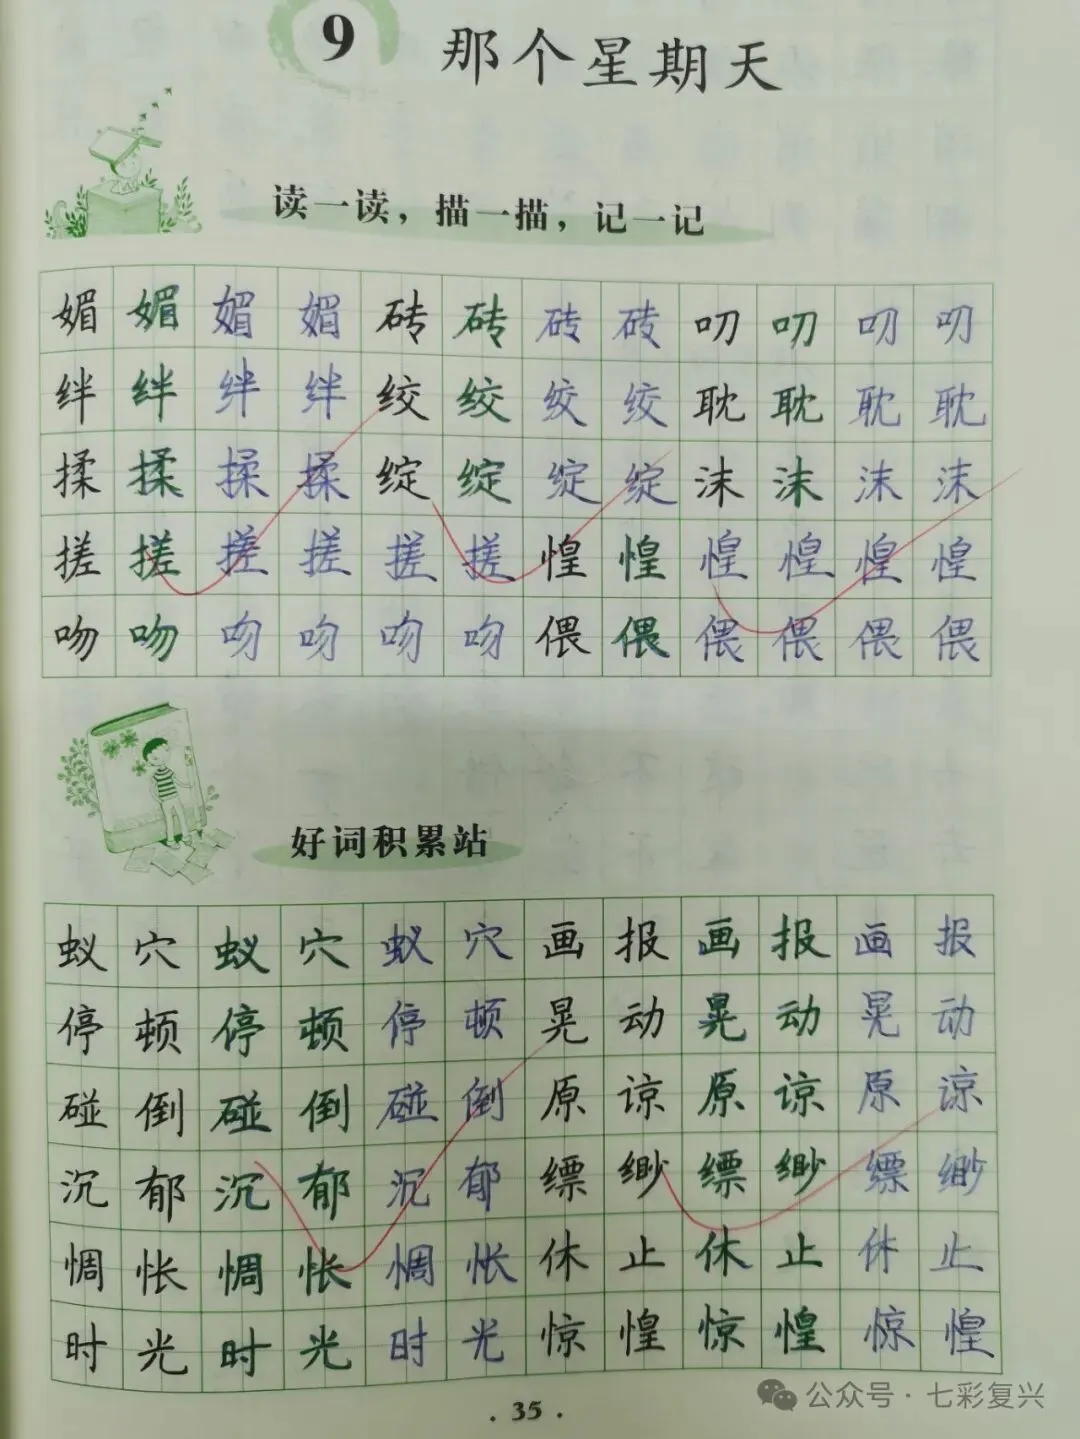 9 那个星期天
读一读，描一描，记一记
媚媚媚媚砖砖砖砖叨叨叨叨
绊绊绊绊绞绞绞绞耽耽耽耽
揉揉揉揉绽绽绽绽沫沫沫沫
搓搓搓搓搓搓惶惶惶惶惶惶
吻吻吻吻吻吻偎偎偎偎偎偎
好词积累站
蚁穴蚁穴蚁穴画报画报画报
停顿停顿停顿晃动晃动晃动
碰倒碰倒碰倒原谅原谅原谅
沉郁沉郁沉郁缥缈缥缈缥缈
惆怅惆怅惆怅休止休止休止
时光时光时光惊惶惊惶惊惶
· 35 ·
公众号 · 七彩复兴